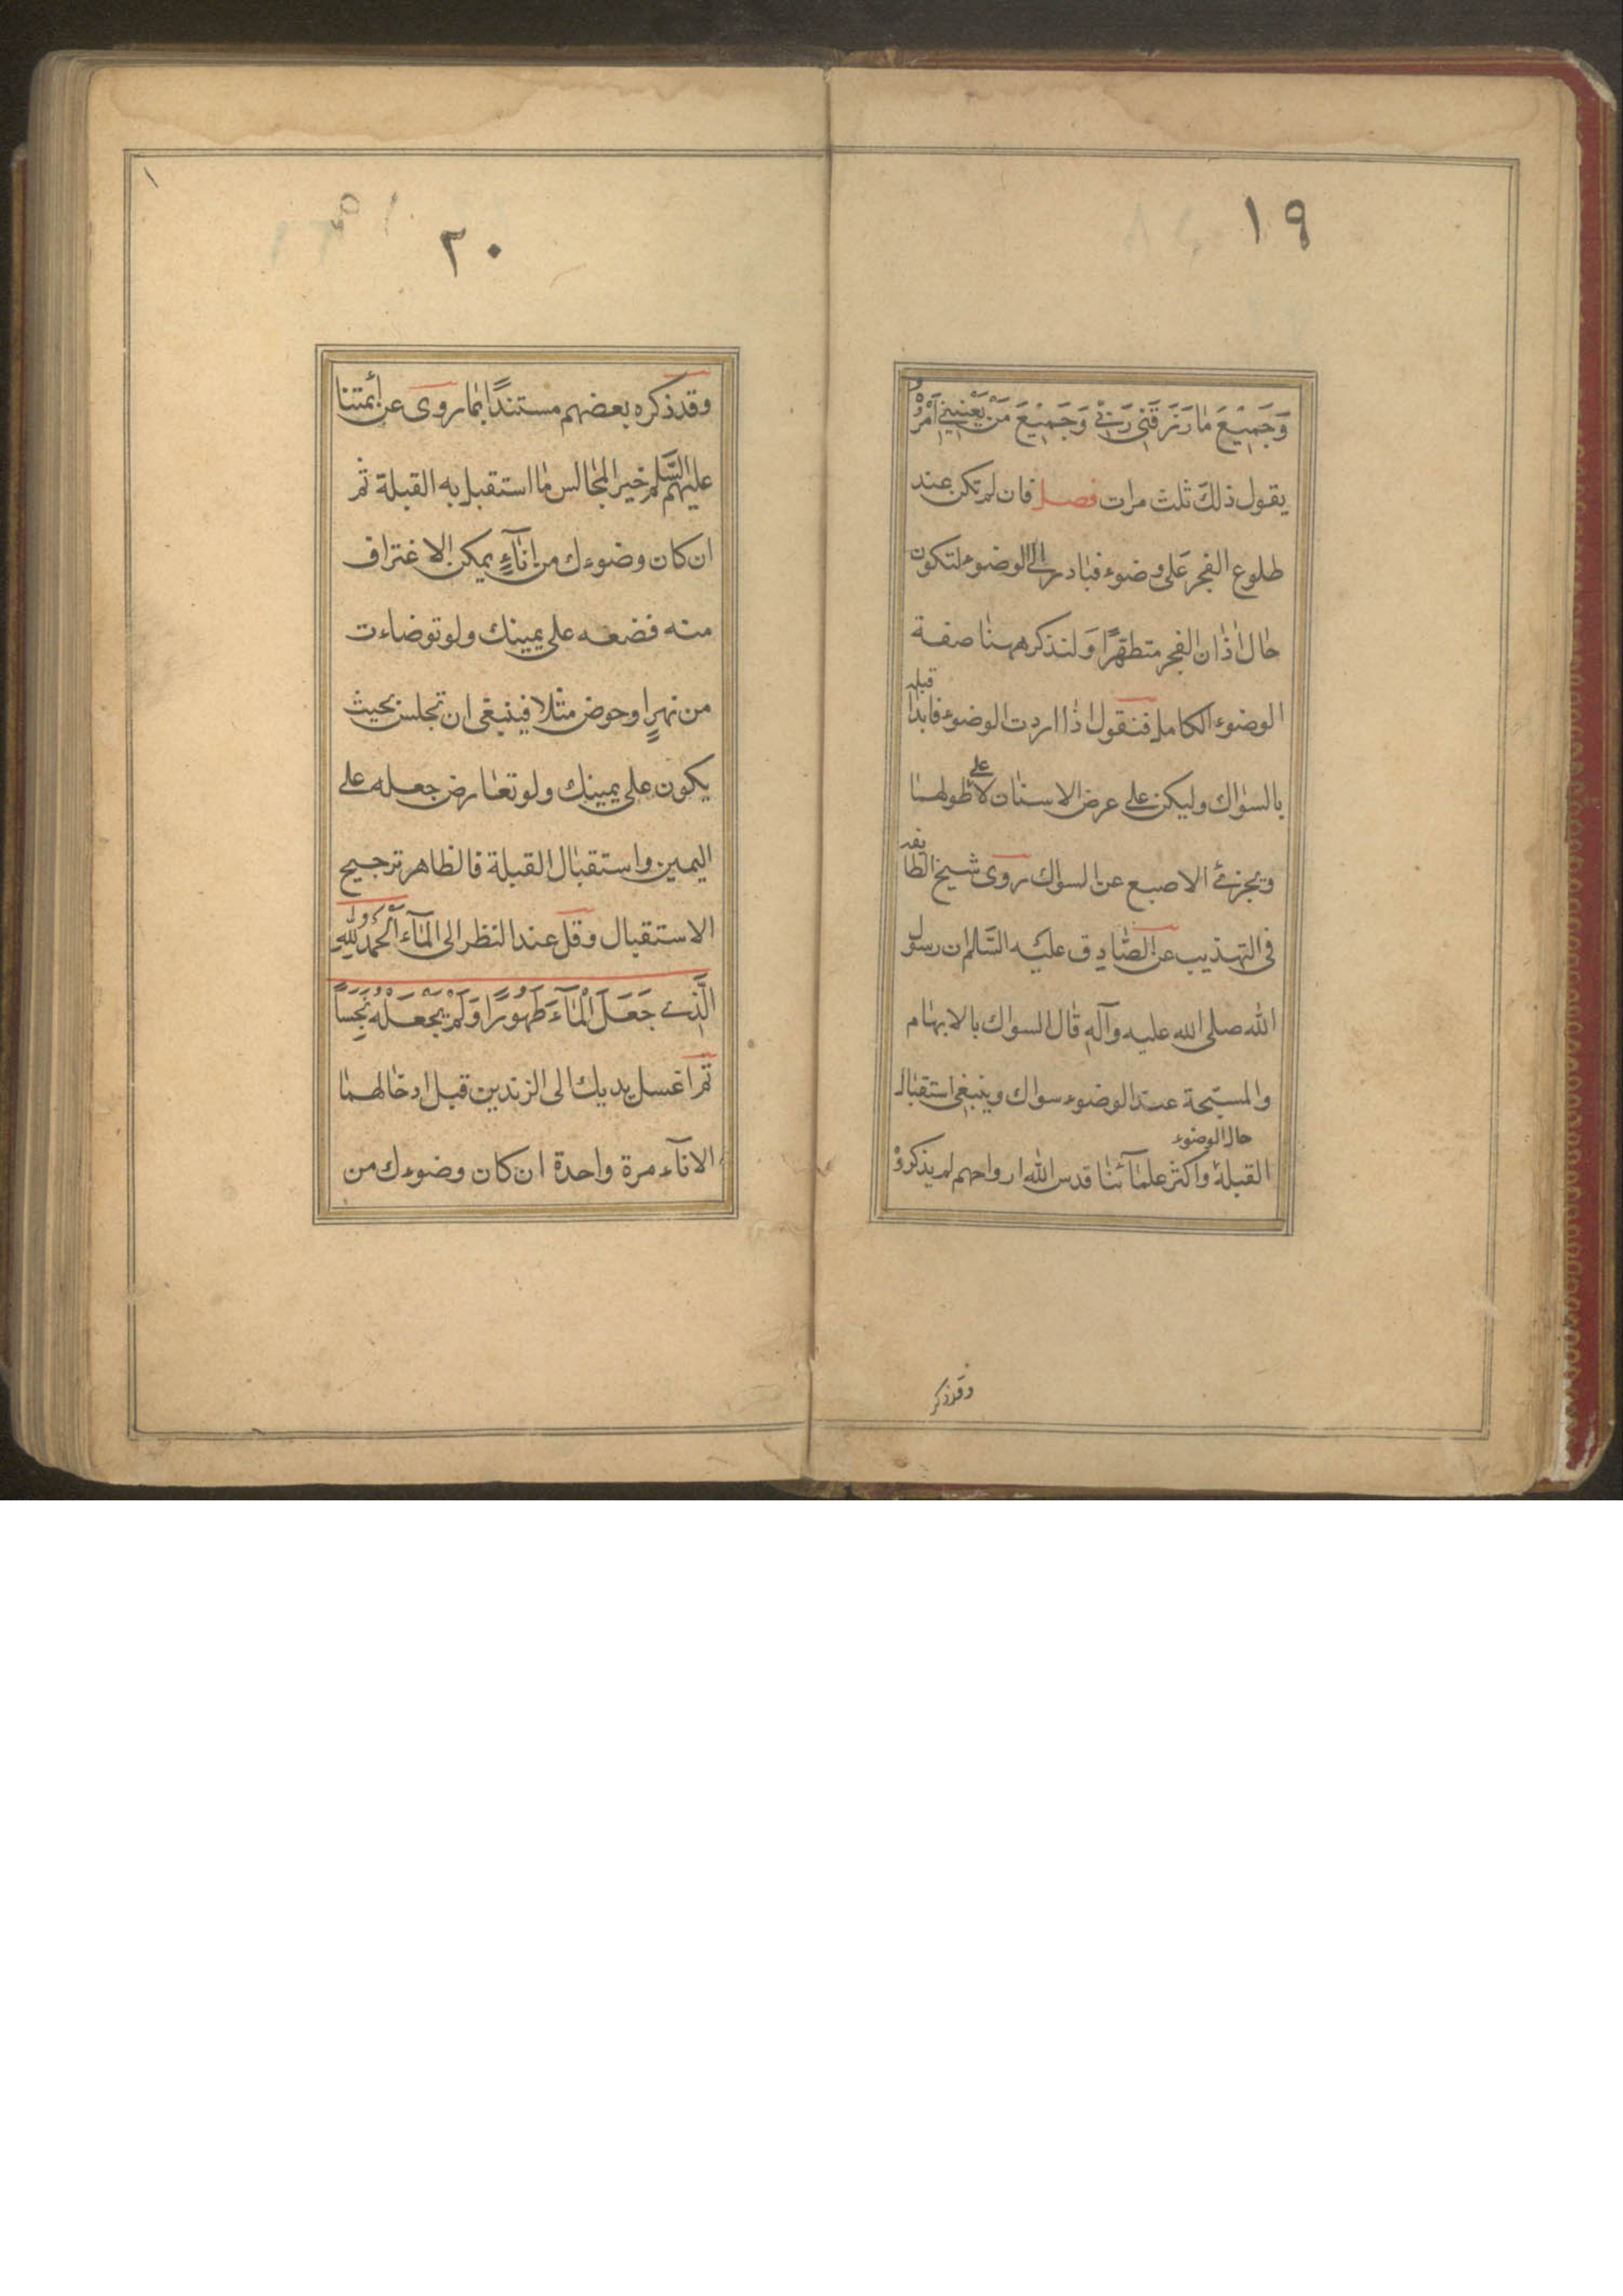 ١٩
وَجَمِيْعَ مٰا رَزَقَنِى رَبِّي وَجَمِيْعَ مَنْ يَعْنِينِي اَمْرُهُ
يقول ذلك ثلث مرات فصل فان لم تكن عند
طلوع الفجر على وضوء فبادر الى الوضوء لتكون
حال اذان الفجر متطهرًا ولنذكر ههنا صفة
الوضوء الكامل فنقول اذا اردت الوضوء فابدا قبله
بالسواك وليكن على عرض الاسنان لا على طولهما
ويجزئ الاصبع عن السواك روى شيخ الطايفه
فى التهذيب عن الصّادق عليه السّلم ان رسول
الله صلى الله عليه وآله قال السواك بالابهام
والمسبّحة عند الوضوء سواك وينبغى استقبال
القبلة حال الوضوء واكثر علمآئنا قدس الله ارواحهم لم يذكروه
وقد ذكر
٢٠
وقد ذكره بعضهم مستندًا بما روى عن أئمتنا
عليهم السّلم خير المجالس ما استقبل به القبلة ثم
ان كان وضوءك من انآءٍ يمكن الاغتراف
منه فضعه على يمينك ولو توضاءت
من نهرٍ او حوض مثلا فينبغى ان تجلس بحيث
يكون على يمينك ولو تعارض جعله على
اليمين واستقبال القبلة فالظاهر ترجيح
الاستقبال وقل عند النظر الى المآء اَلْحَمْدُ لِلّٰهِ
الَّذِي جَعَلَ الْمٰآءَ طَهُورًا وَلَمْ يَجْعَلْهُ نَجِسًا
ثم اغسل يديك الى الزندين قبل ادخالهما
الانآء مرة واحدة ان كان وضوءك من